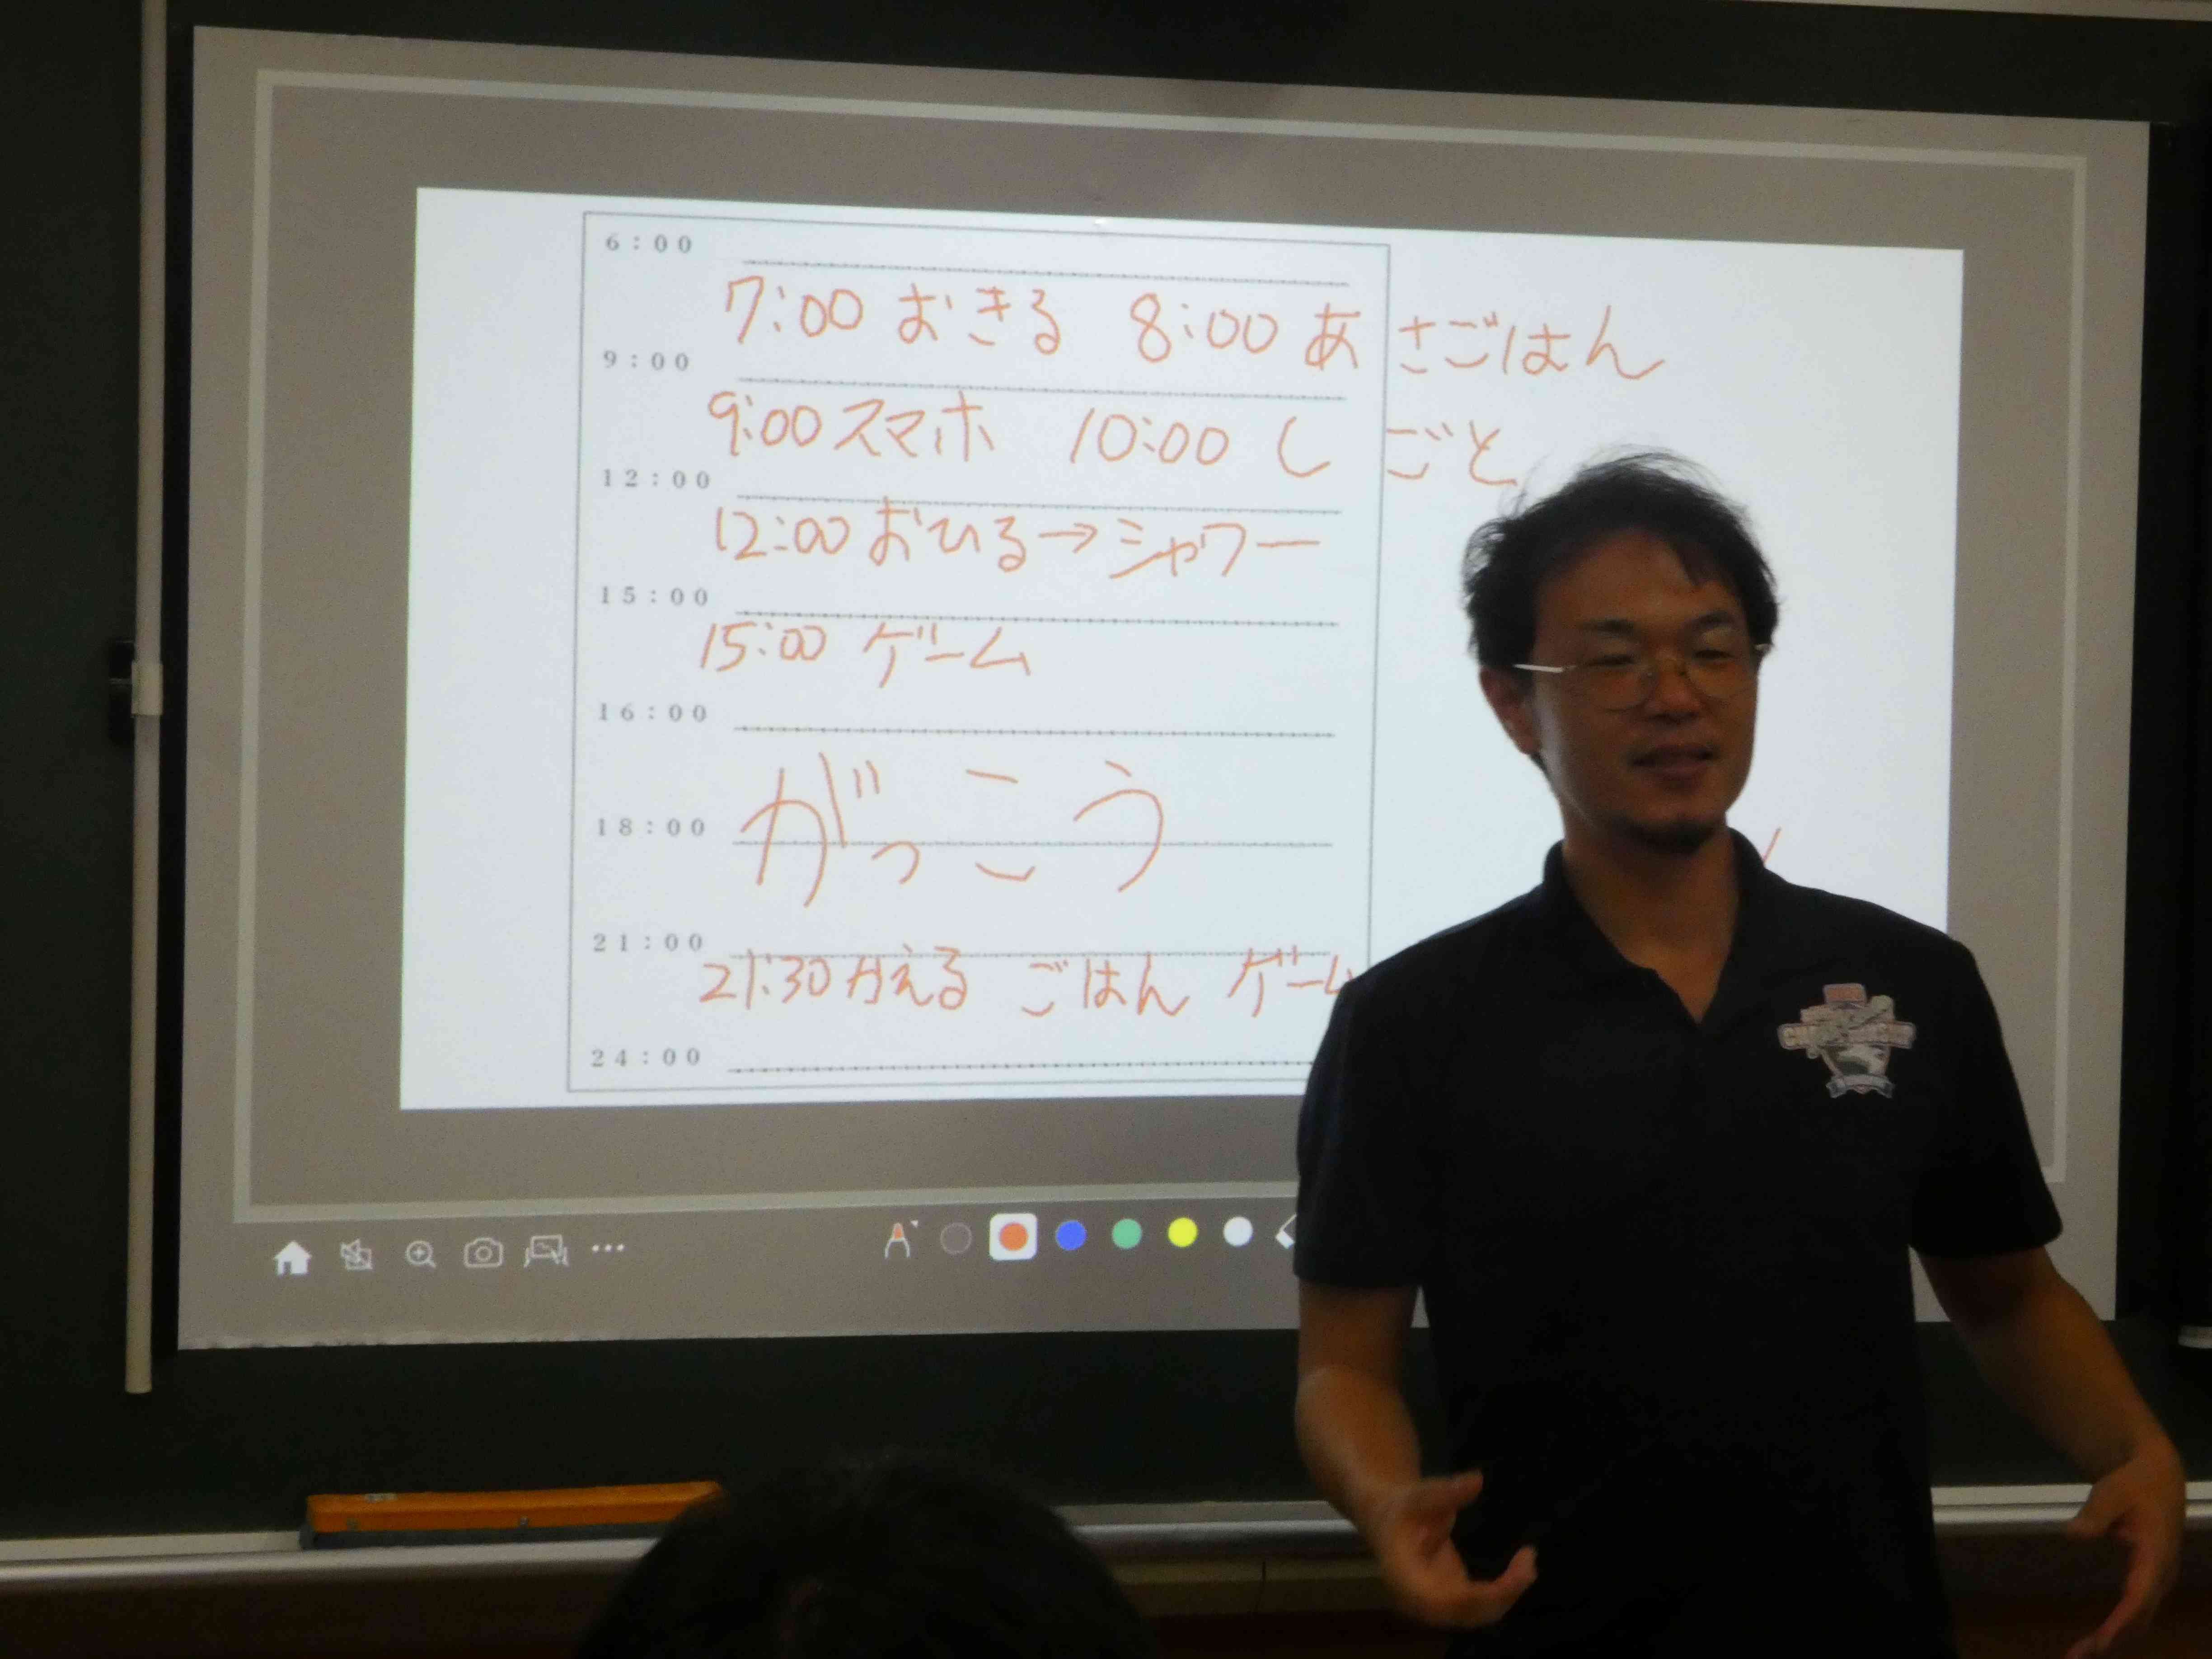 6:00
7:00 おきる 8:00 あさごはん
9:00
9:00 スマホ 10:00 しごと
12:00
12:00 おひる→シャワー
15:00
15:00 ゲーム
16:00
がっこう
18:00
21:00
21:30 かえる ごはん ゲーム
24:00